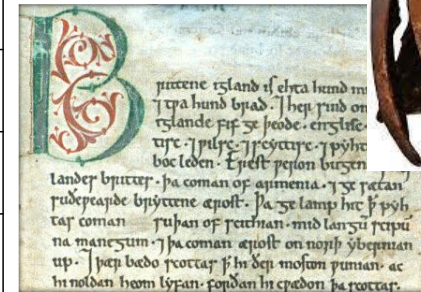 Brittene igland is ehta hund mi
⁊ twa hund brad. ⁊ her sind on
iglande fif ge þeode. englisc.
tisc. ⁊ wilsc. ⁊ scyttisc. ⁊ pyht
boc leden. Erest weron bugen
landes brittes. þa coman of armenia. ⁊ ge sætan
suðewearde bryttene ærost. Þa ge lamp hit þ pyh
tas coman suþan of scithian. mid langū scipū
na manegum. ⁊ þa coman ærost on norþ ybernian
up. ⁊ þær bædo scottas þ hi ðer moston wunian. ac
hi noldan heom lyfan. forðan hi cwædon þa scottas.